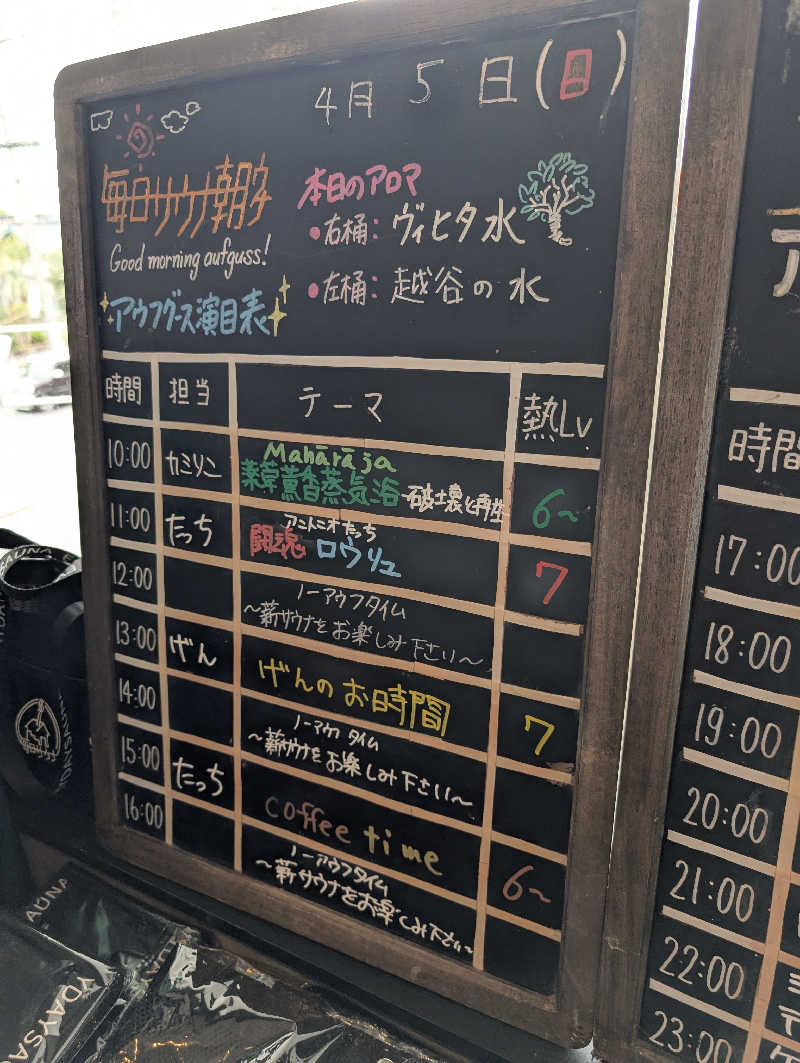 4月 5日(日)
毎日サウナ朝多
Good morning aufguss!
アウフグース演目表
本日のアロマ
・右桶: ヴィヒタ水
・左桶: 越谷の水
時間 担当 テーマ 熱Lv
10:00 カミりこ Mahārāja
薬草薫香蒸気浴 破壊と再生 6~
11:00 たっち アントニオたっち
闘魂 ロウリュ 7
12:00 ノーアウフタイム
~薪サウナをお楽しみ下さい~
13:00 げん げんのお時間 7
14:00 ノーアウフタイム
~薪サウナをお楽しみ下さい~
15:00 たっち coffee time 6~
16:00 ノーアウフタイム
~薪サウナをお楽しみ下さい~
ア
時間
17:00
18:00
19:00
20:00
21:00
22:00
23:00
AUNA
YDAYSA